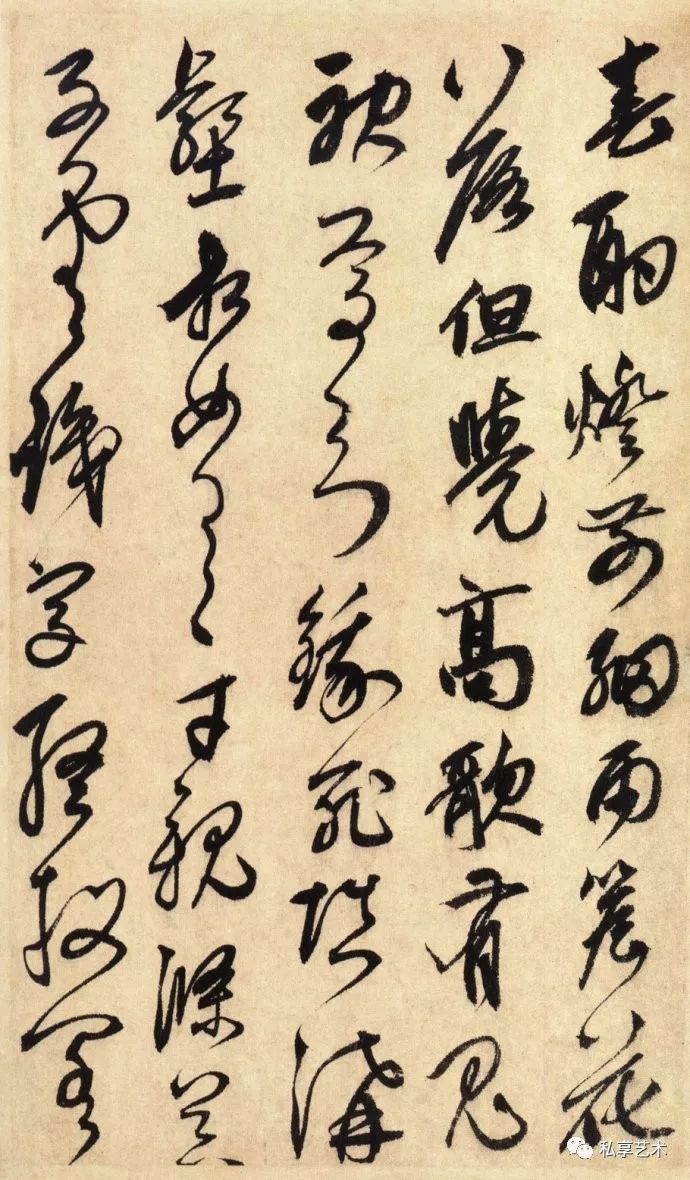 春酌燈前細雨簷花
落但覺高歌有鬼
神焉知餓死填溝
壑相如逸才親滌器
子雲識字終投閣
私享艺术